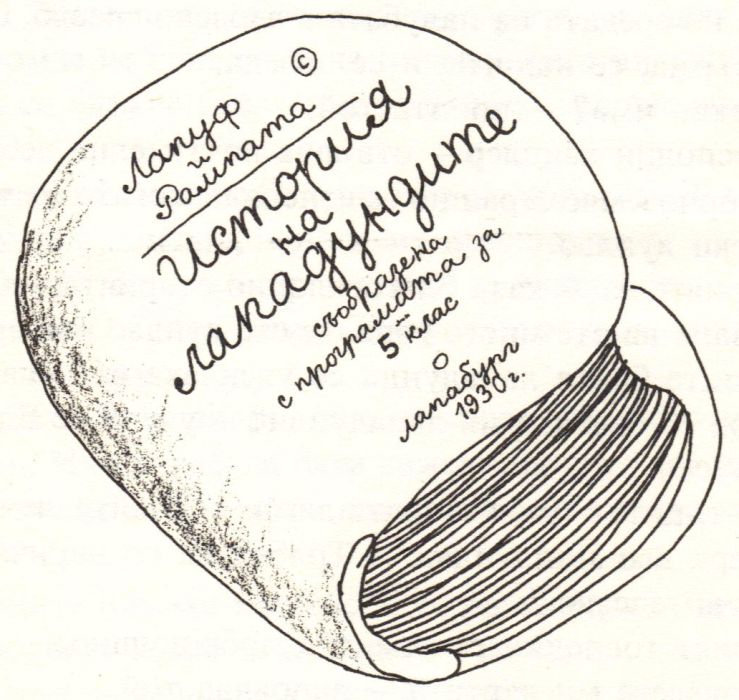 ©
Лапуф
Рампата
История
на
лападундите
съобразена
с програмата за
5ТИ клас
О
лапабург
1930г.